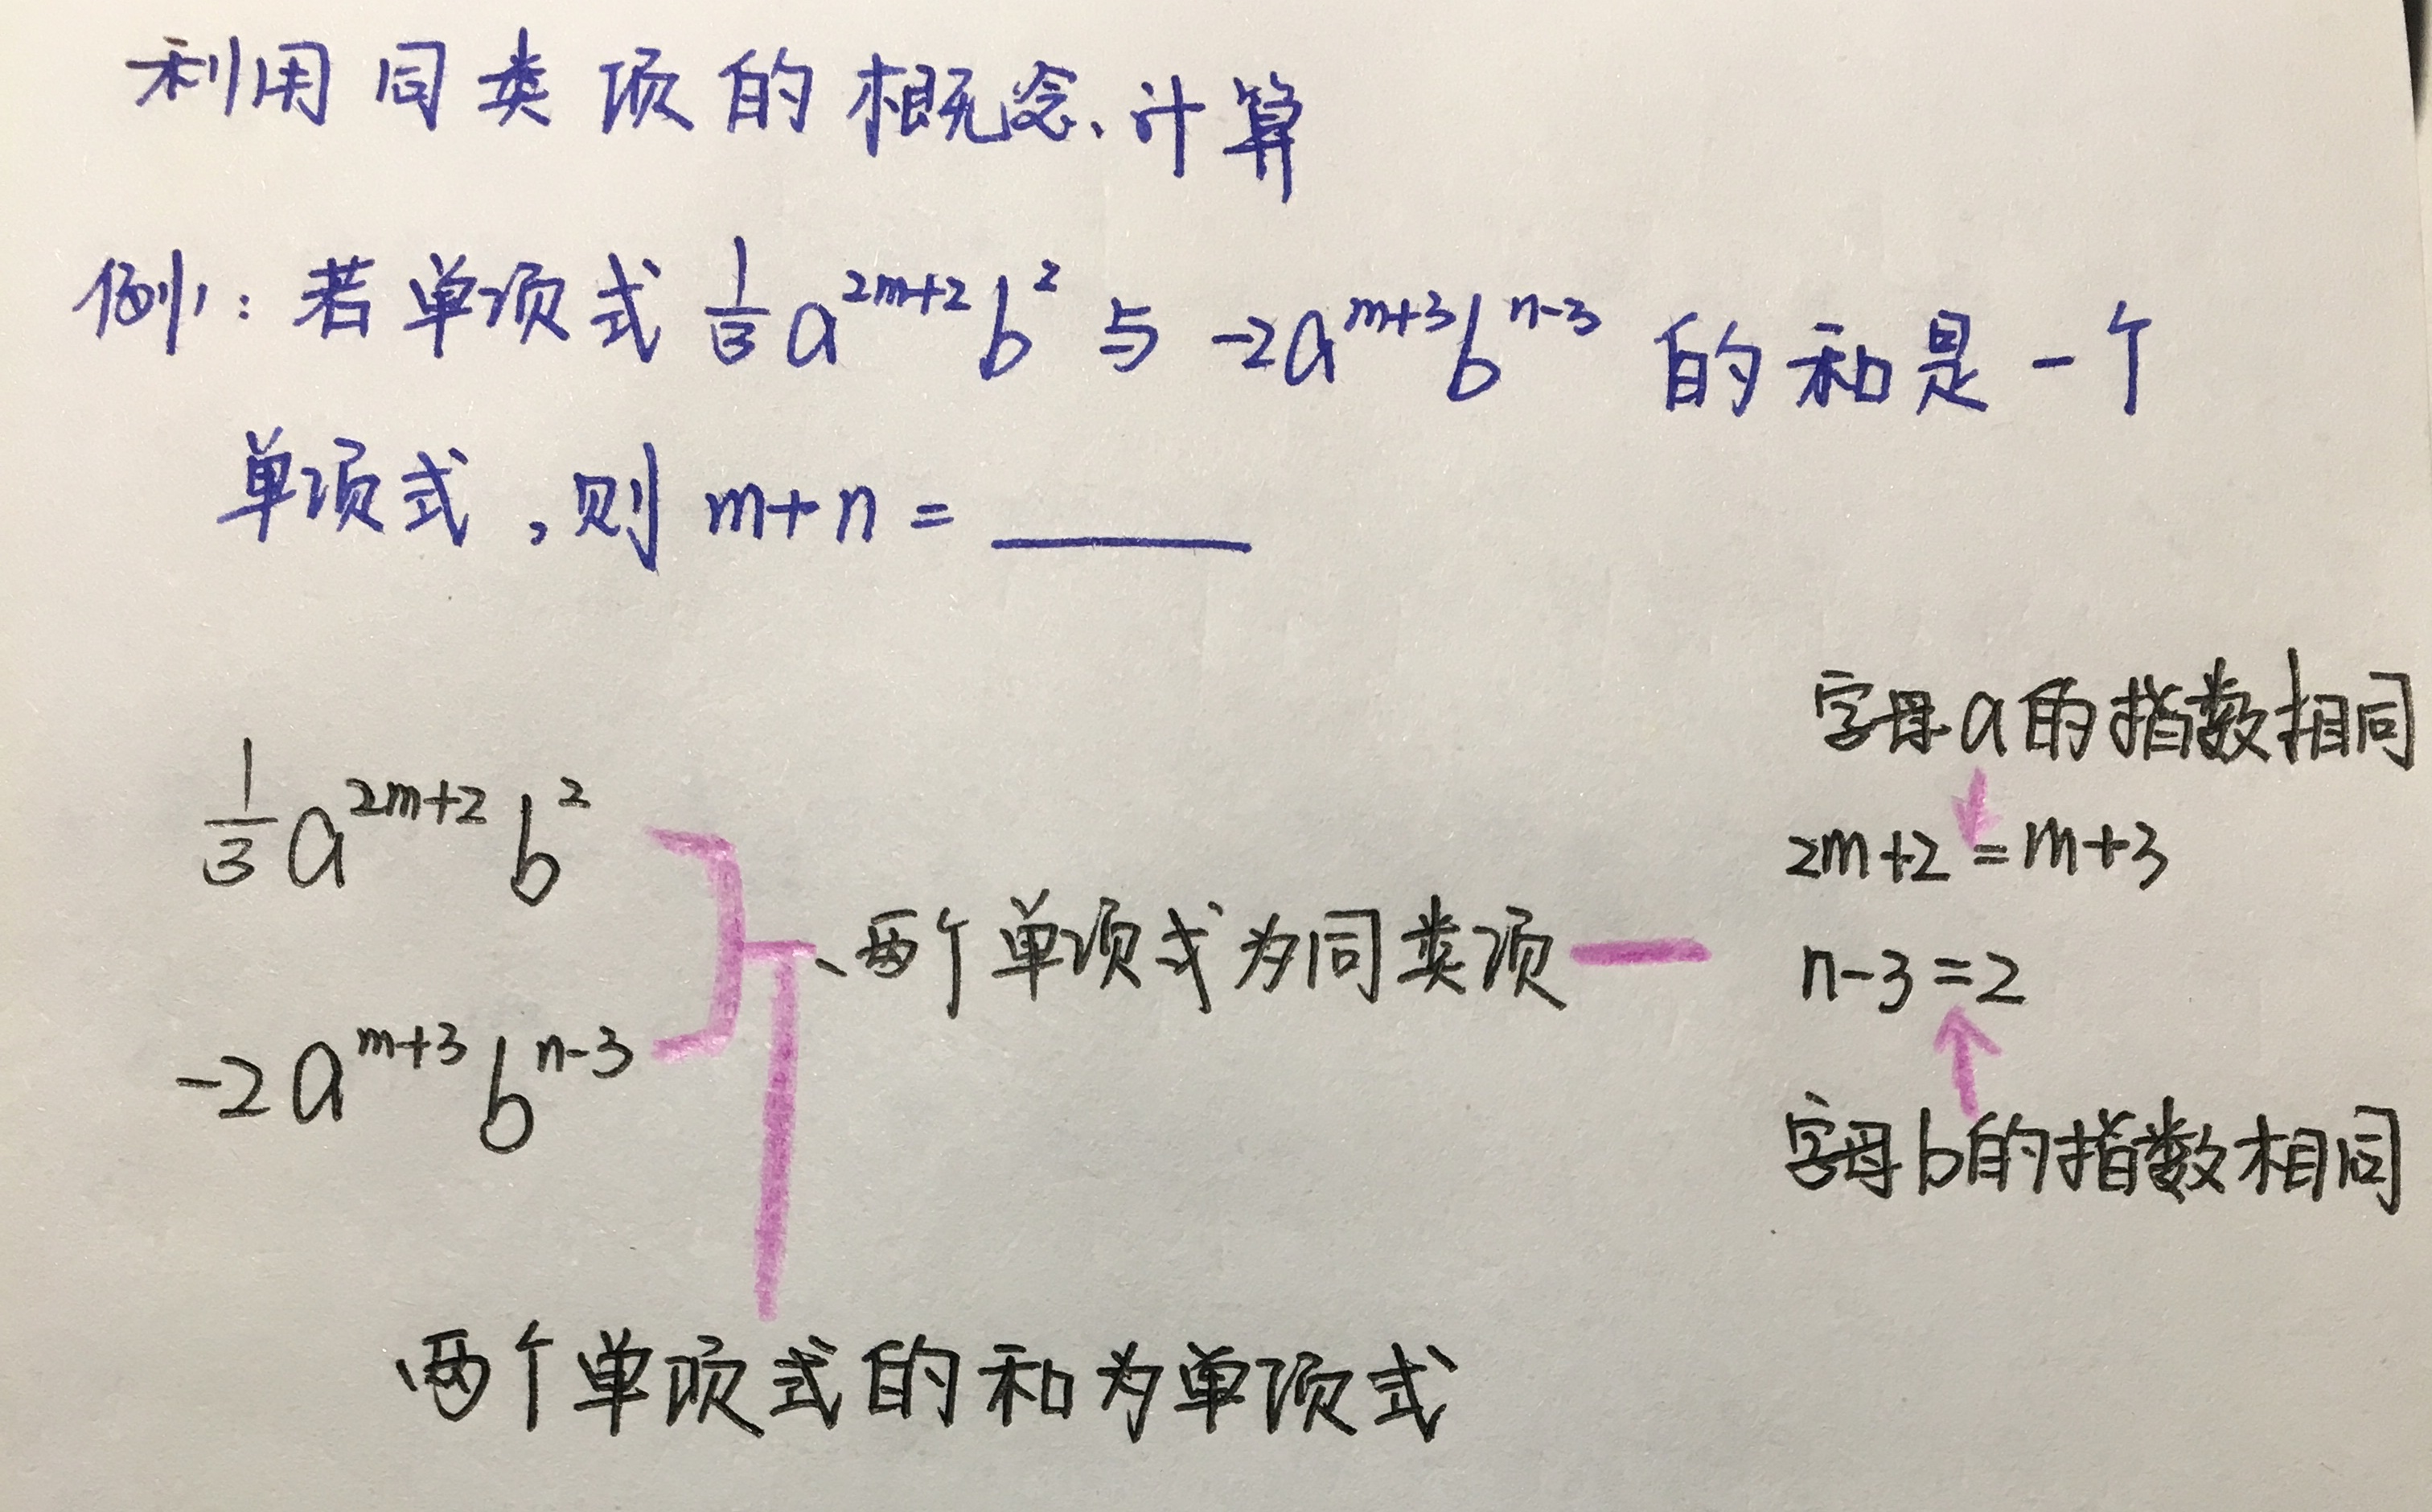 利用同类项的概念、计算
例1：若单项式 1/3 a^{2m+2} b^2 与 -2a^{m+3} b^{n-3} 的和是一个
单项式，则 m+n = ______
字母a的指数相同
1/3 a^{2m+2} b^2
2m+2=m+3
两个单项式为同类项
n-3=2
-2a^{m+3} b^{n-3}
字母b的指数相同
两个单项式的和为单项式